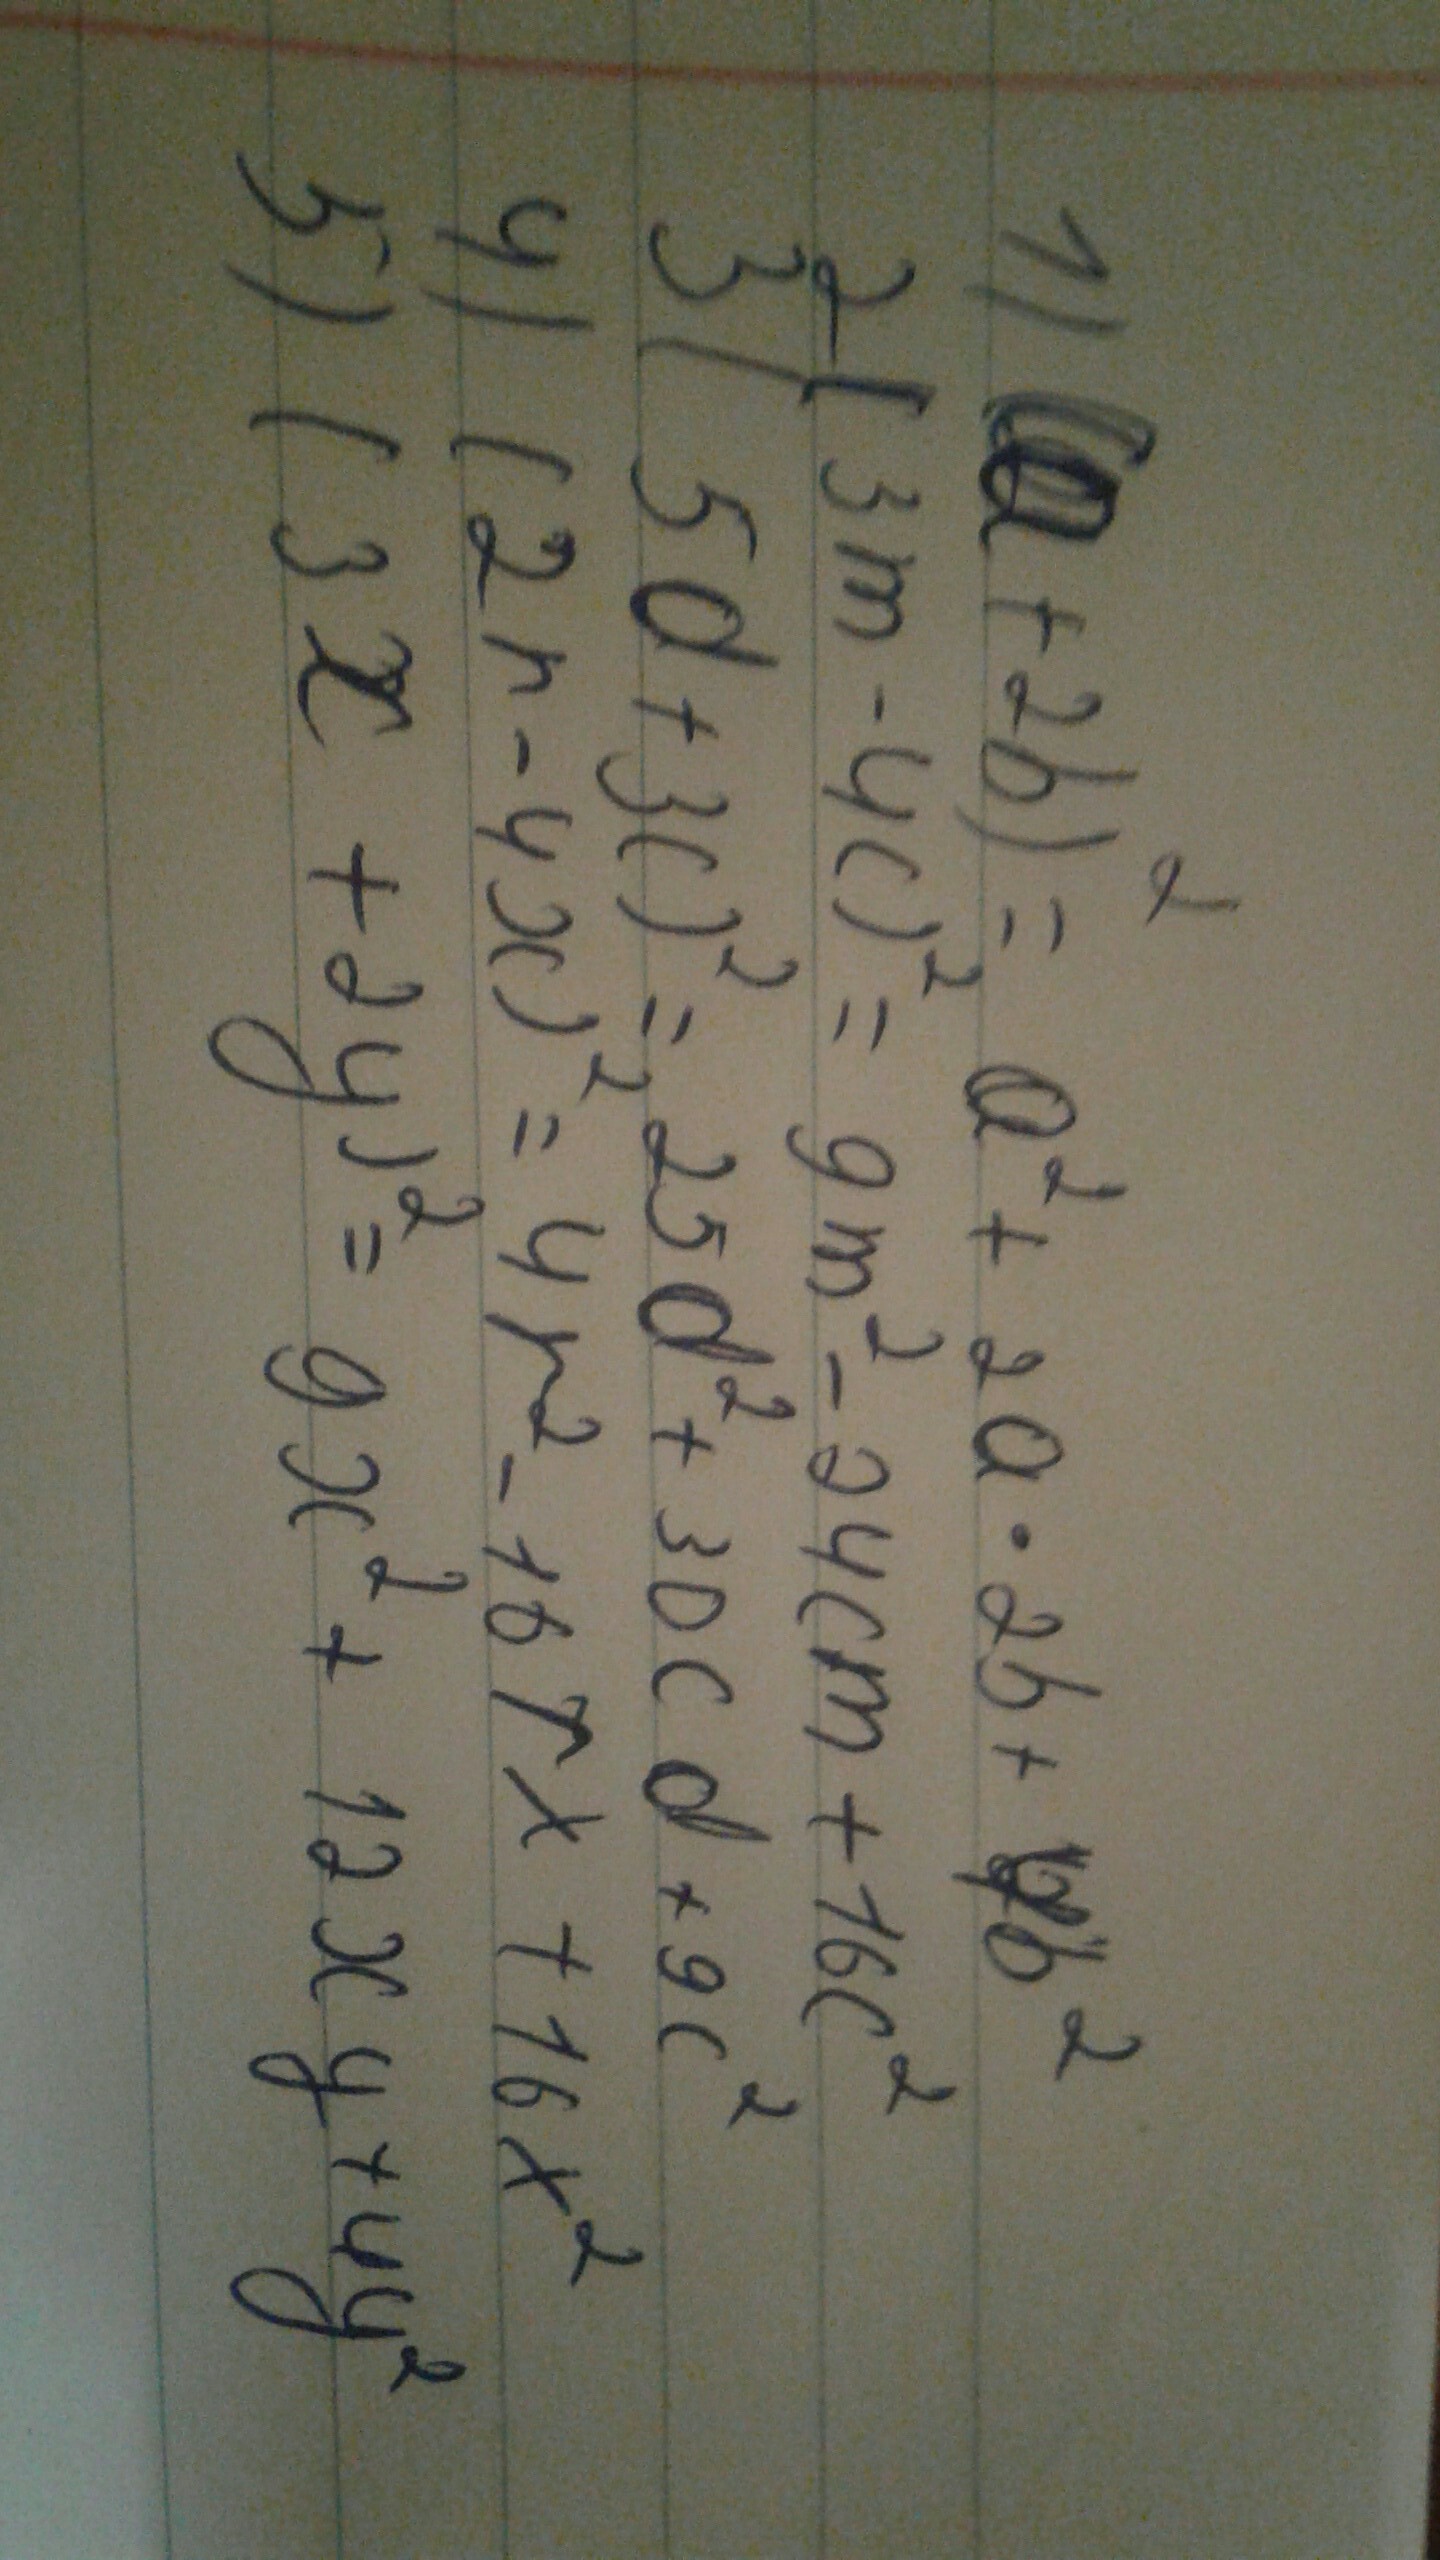 1) (a+2b)² = a² + 2a·2b + 4b²
2) (3m-4c)² = 9m² - 24cm + 16c²
3) 5d + 3c)² = 25d² + 30cd + 9c²
4) (2r-4x)² = 4r² - 16rx + 16x²
5) (3x + 2y)² = 9x² + 12xy + 4y²